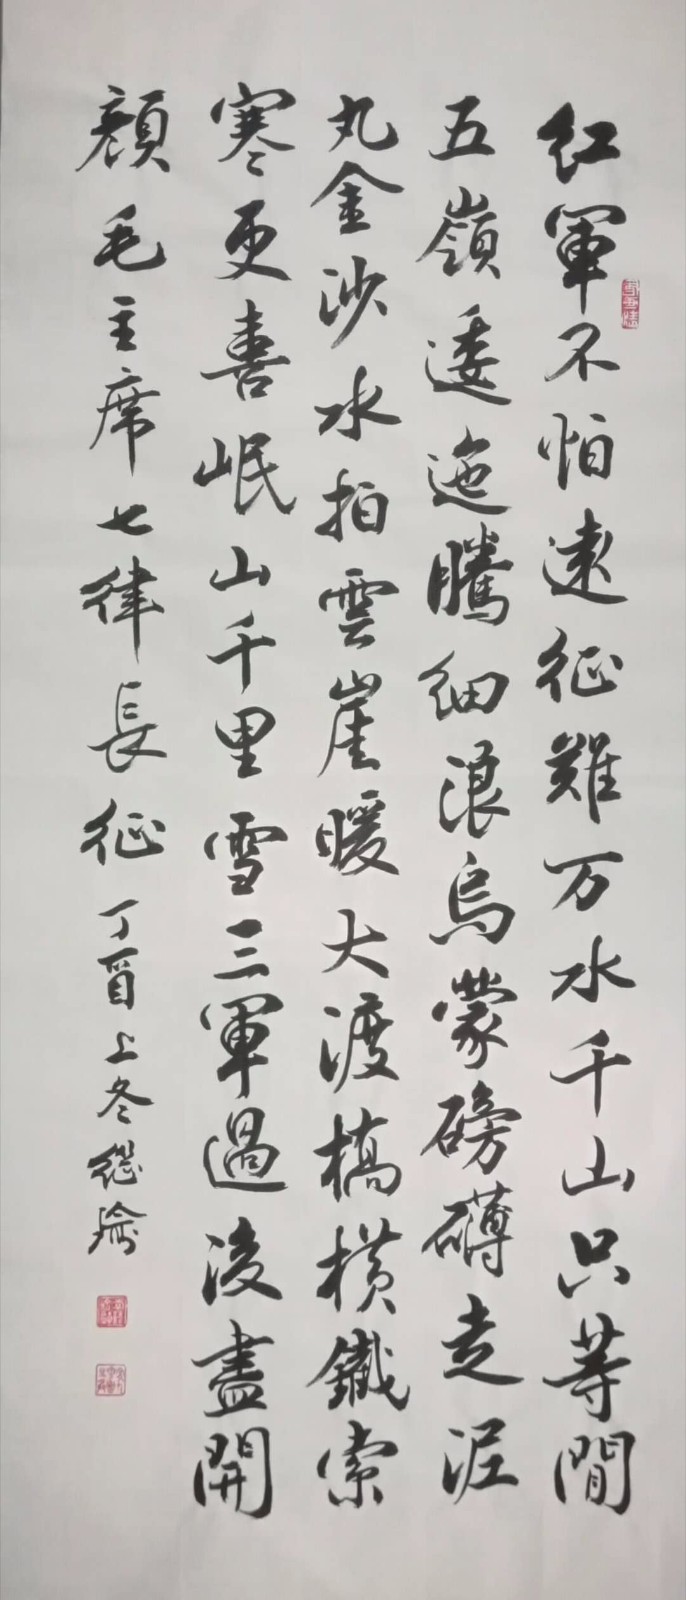 红軍不怕遠征難万水千山只等閒
五嶺逶迤騰細浪烏蒙磅礴走泥
丸金沙水拍雲崖暖大渡橋横鐵索
寒更喜岷山千里雪三軍過後盡開
顔毛主席七律長征丁酉上冬继瑜